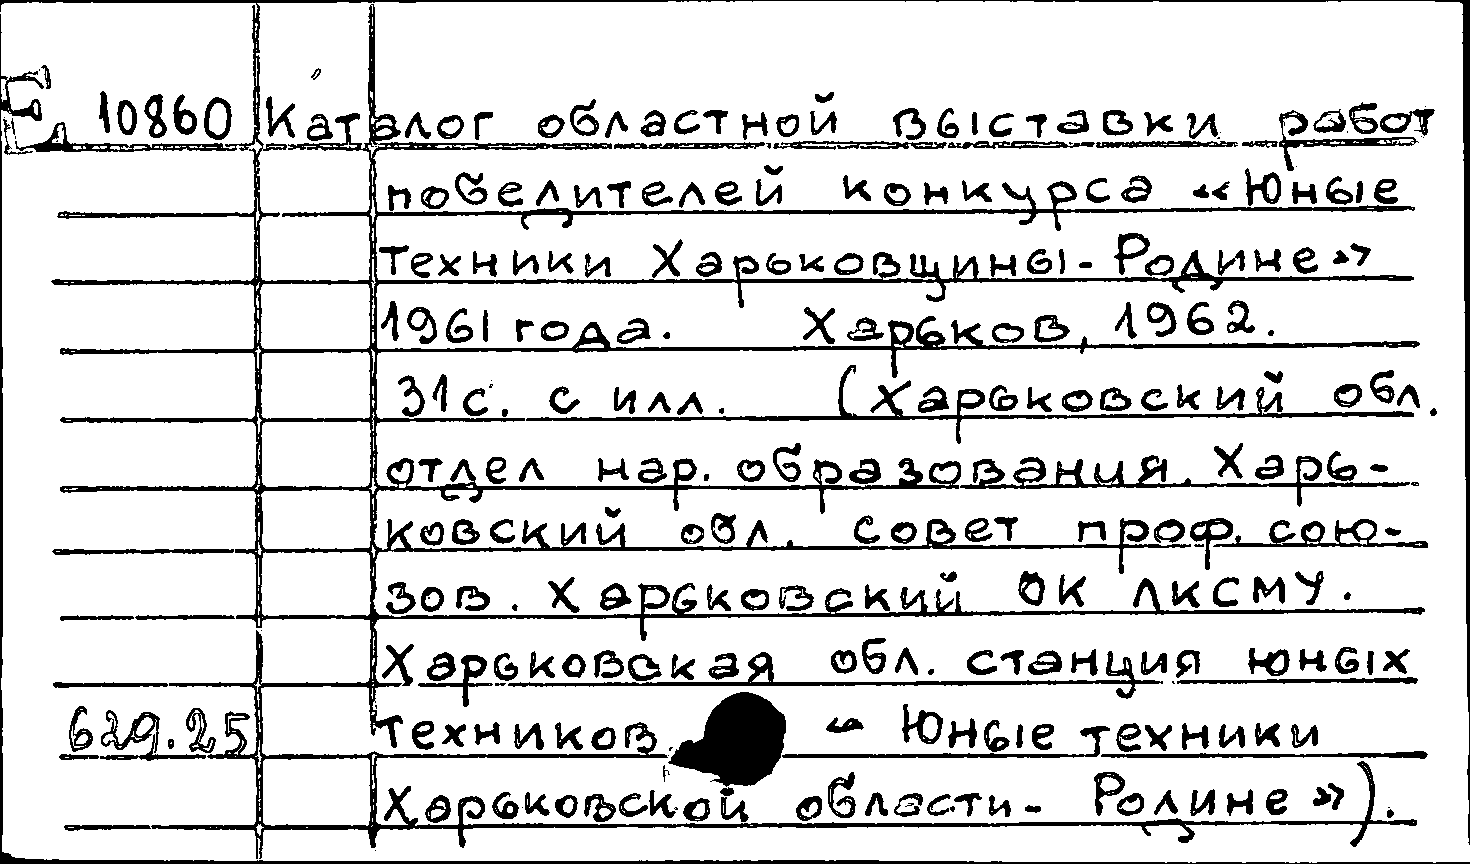 Ед 10860 Каталог областной выставки работ
победителей конкурса «Юные
техники Харьковщины - Родине»
1961 года. Харьков, 1962.
31с. с илл. (Харьковский обл.
отдел нар. образования. Харь-
ковский обл. совет проф. сою-
зов. Харьковский ОК ЛКСМУ.
Харьковская обл. станция юных
629.25 техников « Юные техники
Харьковской области - Родине»).